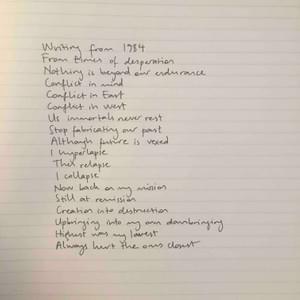 Writing from 1984
From times of desperation
Nothing is beyond our endurance
Conflict in mind
Conflict in East
Conflict in West
Us immortals never rest
Stop fabricating our past
Although future is vexed
I hyperlapse
Then relapse
I collapse
Now back on my mission
Still at remission
Creation into destruction
Upbringing into my own downbringing
Highest was my lowest
Always hurt the ones closest